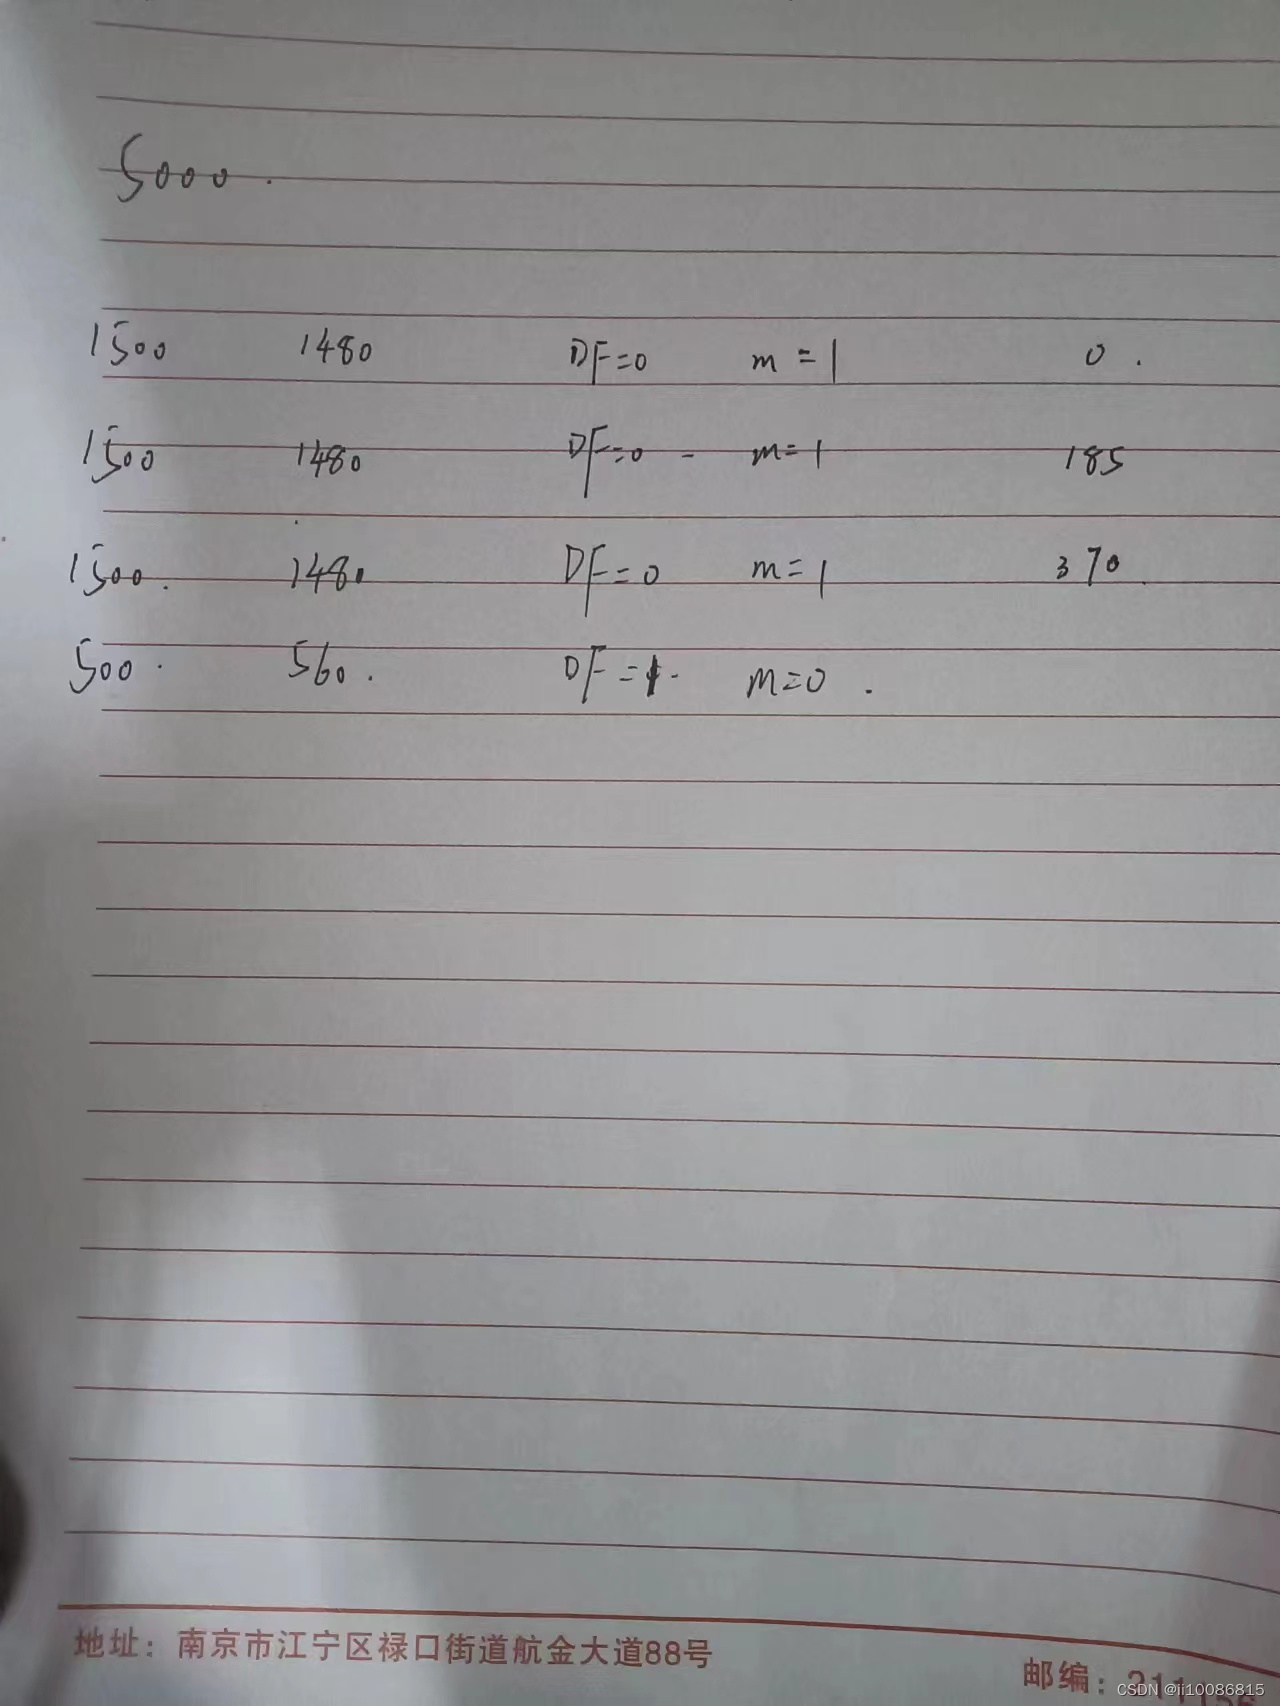 5000.
1500 1480 DF=0 m=1 0.
1500 1480 DF=0 - m=1 185
1500. 1480 DF=0 m=1 370
500. 560. DF=1. m=0.
地址：南京市江宁区禄口街道航金大道88号
邮编：211
CSDN @ji10086815